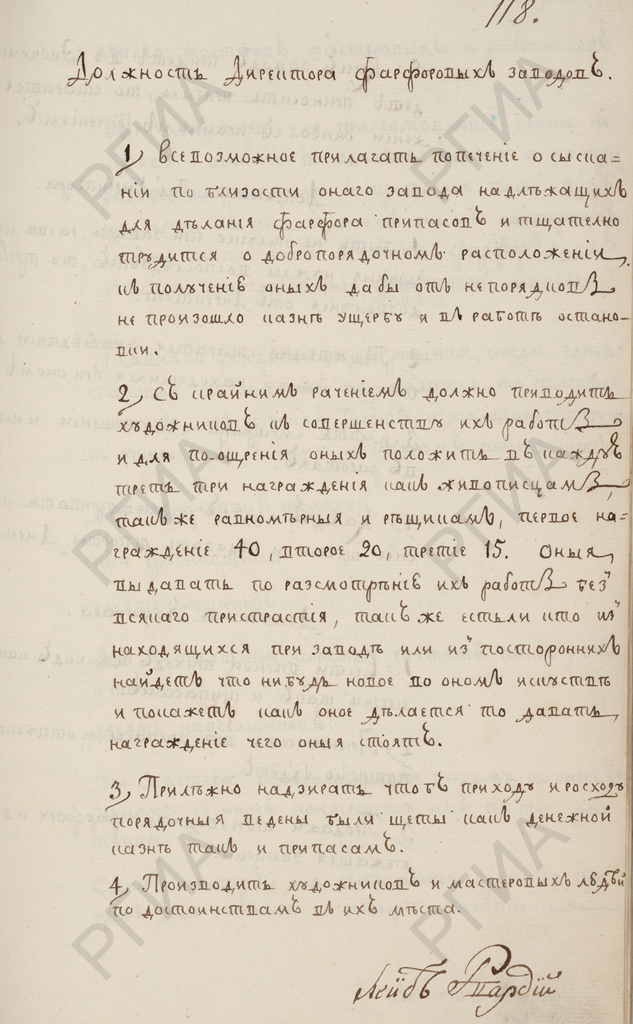 118.
Должность Директора фарфоровыхъ заводовъ.
1, всевозможное прилагать попеченіе о сыска=
ніи по близости онаго завода надлѣжащихъ
для дѣланія фарфора припасовъ и тщателно
трудится о добропорядочномъ расположеніи,
къ полученію оныхъ дабы отъ непорядковъ
не произошло казнѣ ущербу и въ работѣ остано-
вки.
2, съ крайнимъ раченіемъ должно приводить
художниковъ къ совершенству ихъ работъ
и для по-ощренія оныхъ положить въ каждую
треть три награжденія какъ живописцамъ,
такъ же равномѣрныя и рѣщикамъ, первое на=
гражденіе 40, второе 20, третіе 15. Оныя,
выдавать по разсмотрѣнію ихъ работъ без
всякаго пристрастія, такъ же естьли кто из
находящихся при заводѣ или из постороннихъ
найдетъ что нибудь новое во ономъ искуствѣ
и покажетъ какъ оное дѣлается то давать,
награжденіе чего оныя стоятъ.
3, Прилѣжно надзирать чтобъ приходу и росходу
порядочныя ведены были щеты какъ денежной
казнѣ такъ и припасамъ.
4, Производить художниковъ и мастеровыхъ людѣй
по достоинствамъ въ ихъ мѣста.
Якобъ Гвардій
РГИА
РГИА
РГИА
РГИА
РГИА
РГИА